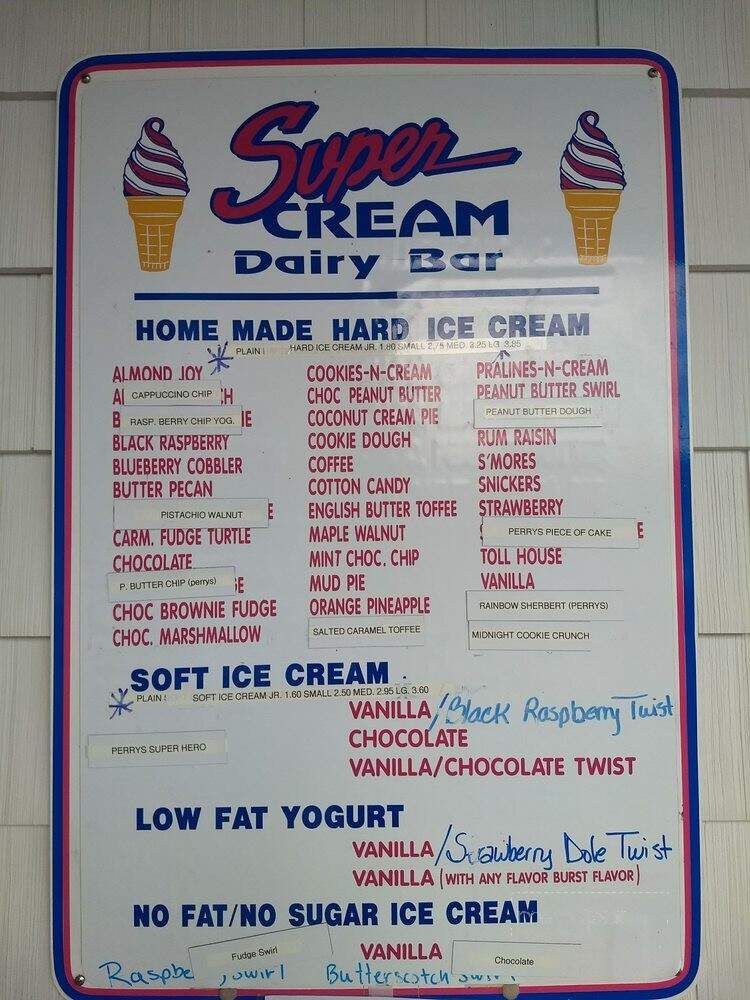 Super
CREAM
Dairy Bar
HOME MADE HARD ICE CREAM
PLAIN HARD ICE CREAM JR. 1.80 SMALL 2.75 MED. 3.25 LG. 3.85
ALMOND JOY
CAPPUCCINO CHIP
RASP. BERRY CHIP YOG.
BLACK RASPBERRY
BLUEBERRY COBBLER
BUTTER PECAN
PISTACHIO WALNUT
CARM. FUDGE TURTLE
CHOCOLATE
P. BUTTER CHIP (perrys)
CHOC BROWNIE FUDGE
CHOC. MARSHMALLOW
COOKIES-N-CREAM
CHOC PEANUT BUTTER
COCONUT CREAM PIE
COOKIE DOUGH
COFFEE
COTTON CANDY
ENGLISH BUTTER TOFFEE
MAPLE WALNUT
MINT CHOC. CHIP
MUD PIE
ORANGE PINEAPPLE
SALTED CARAMEL TOFFEE
PRALINES-N-CREAM
PEANUT BUTTER SWIRL
PEANUT BUTTER DOUGH
RUM RAISIN
S'MORES
SNICKERS
STRAWBERRY
PERRYS PIECE OF CAKE
TOLL HOUSE
VANILLA
RAINBOW SHERBERT (PERRYS)
MIDNIGHT COOKIE CRUNCH
SOFT ICE CREAM
PLAIN SOFT ICE CREAM JR. 1.60 SMALL 2.50 MED. 2.95 LG. 3.60
VANILLA/Black Raspberry Twist
CHOCOLATE
PERRYS SUPER HERO
VANILLA/CHOCOLATE TWIST
LOW FAT YOGURT
VANILLA/Strawberry Dole Twist
VANILLA (WITH ANY FLAVOR BURST FLAVOR)
NO FAT/NO SUGAR ICE CREAM
Fudge Swirl VANILLA Chocolate
Raspbe Swirl Butterscotch